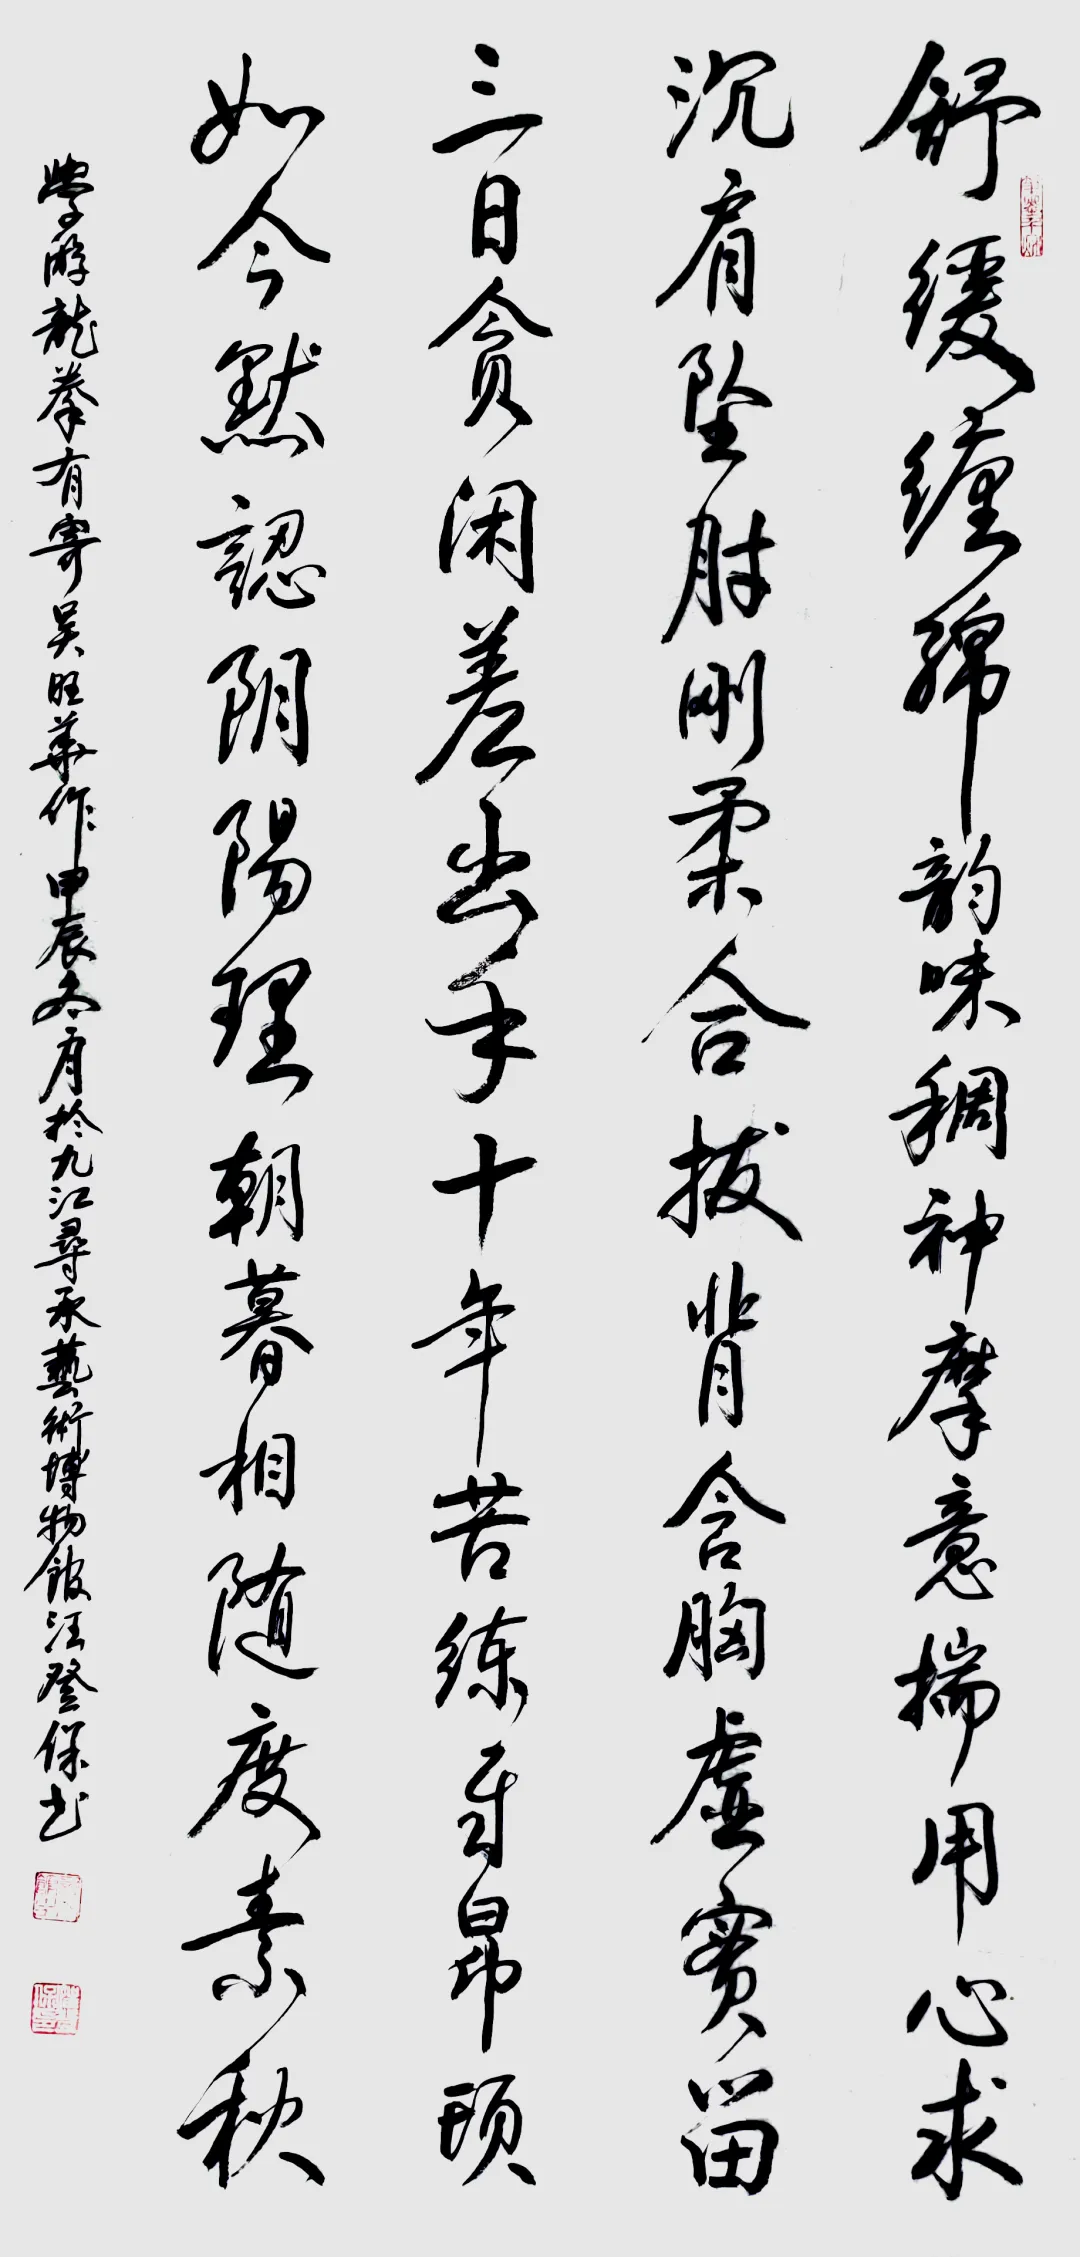 舒缓缠绵韵味稠神摩意揣用心求
沉肩坠肘刚柔合拔背含胸虚实留
三日贪闲羞出手十年苦练敢昂头
如今默認阴陽理朝暮相随度素秋
學游龍拳有寄吴旺華作甲辰冬月於九江尋承藝術博物館汪登保书